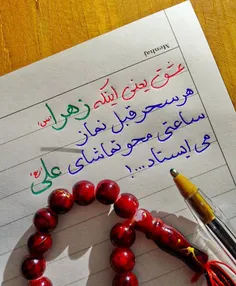 Menhaj
عشق یعنی اینکه زهرا(س)
هر سحر قبل نماز
ساعتی محو تماشای علی(ع)
می ایستاد...!